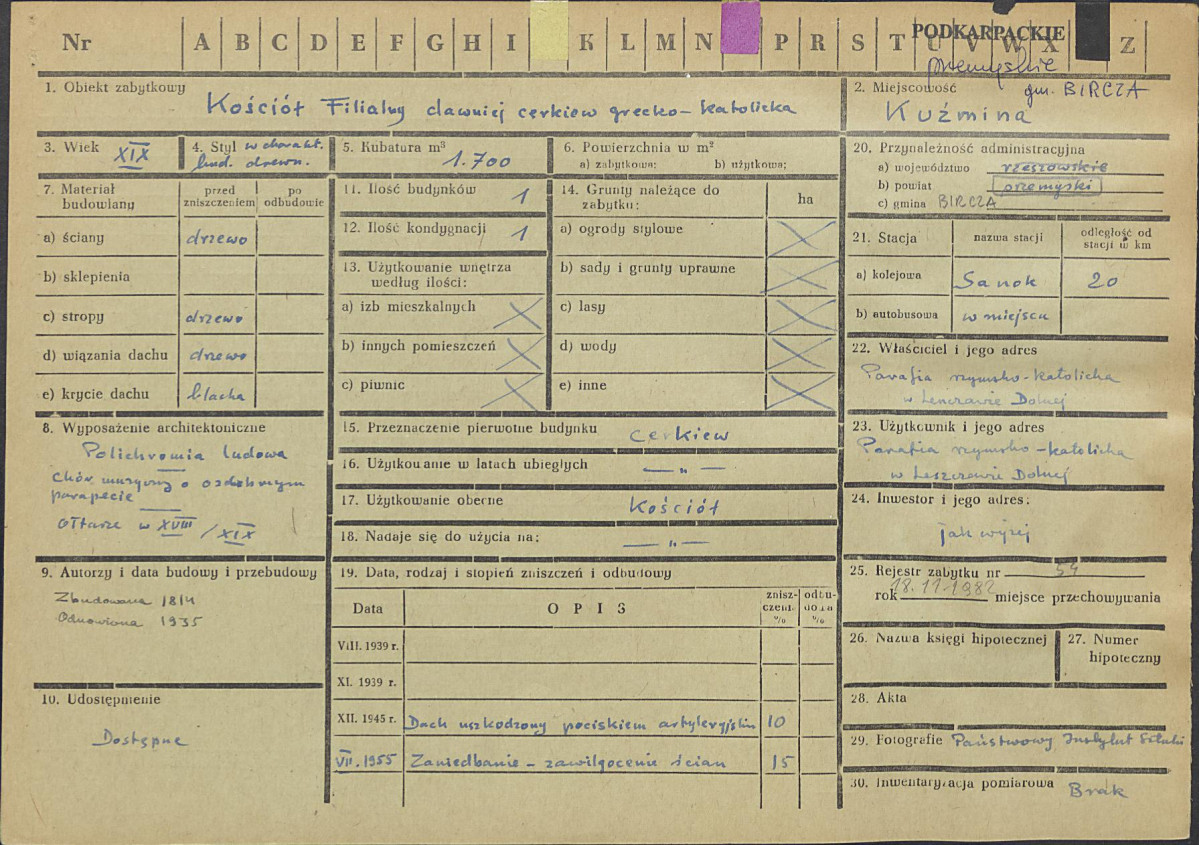 Nr A B C D E F G H I K L M N P R S T U V W X Z
PODKARPACKIE
przemyskie
1. Obiekt zabytkowy
Kościół Filialny dawniej cerkiew grecko-katolicka
2. Miejscowość
gm. BIRCZA
Kuźmina
3. Wiek
XIX
4. Styl w charakt.
lud. drewn.
5. Kubatura m³
1.700
6. Powierzchnia w m²
a) zabytkowa: b) użytkowa:
7. Materiał budowlany
przed zniszczeniem
po odbudowie
a) ściany drzewo
b) sklepienia
c) stropy drzewo
d) wiązania dachu drzewo
e) krycie dachu blacha
8. Wyposażenie architektoniczne
Polichromia ludowa
Chór muzyczny o ozdobnym
parapecie
ołtarze w XVIII / XIX
9. Autorzy i data budowy i przebudowy
Zbudowana 1814
Odnowiona 1935
10. Udostępnienie
Dostępne
11. Ilość budynków 1
12. Ilość kondygnacji 1
13. Użytkowanie wnętrza
według ilości:
a) izb mieszkalnych
b) innych pomieszczeń
c) piwnic
14. Grunty należące do
zabytku:
ha
a) ogrody stylowe
b) sady i grunty uprawne
c) lasy
d) wody
e) inne
15. Przeznaczenie pierwotne budynku cerkiew
16. Użytkowanie w latach ubiegłych — „ —
17. Użytkowanie obecne Kościół
18. Nadaje się do użycia na: — „ —
19. Data, rodzaj i stopień zniszczeń i odbudowy
Data OPIS zniszczeń % odbudowa %
VIII. 1939 r.
XI. 1939 r.
XII. 1945 r. Dach uszkodzony pociskiem artyleryjskim 10
VII. 1955 Zaniedbanie - zawilgocenie ścian 15
20. Przynależność administracyjna
a) województwo rzeszowskie
b) powiat przemyski
c) gmina BIRCZA
21. Stacja
nazwa stacji
odległość od
stacji w km
a) kolejowa Sanok 20
b) autobusowa w miejscu
22. Właściciel i jego adres
Parafia rzymsko-katolicka
w Leszczawie Dolnej
23. Użytkownik i jego adres
Parafia rzymsko-katolicka
w Leszczawie Dolnej
24. Inwestor i jego adres:
jak wyżej
25. Rejestr zabytku nr 54
rok 18.11.1982 miejsce przechowywania
26. Nazwa księgi hipotecznej
27. Numer
hipoteczny
28. Akta
29. Fotografie Państwowy Instytut Sztuki
30. Inwentaryzacja pomiarowa Brak